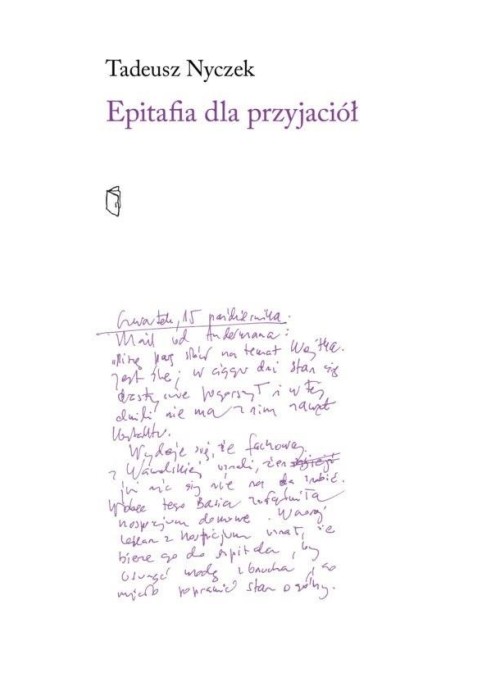 Tadeusz Nyczek
Epitafia dla przyjaciół
Czwartek, 15 października.
Mail od Andermana:
parę słów na temat Wojtka.
Jest źle, w ciągu dni stan się
drastycznie pogorszył i w tej
chwili nie ma z nim nawet
kontaktu.
Wydaje się, że fachowcy
z Wawelskiej uznali, że
już nic się nie da zrobić.
Wobec tego Basia załatwiła
hospicjum domowe. Wczoraj
lekarz z hospicjum uznał, że
bierze go do szpitala, by
usunąć wodę z brzucha i go
poprawić stan ogólny.